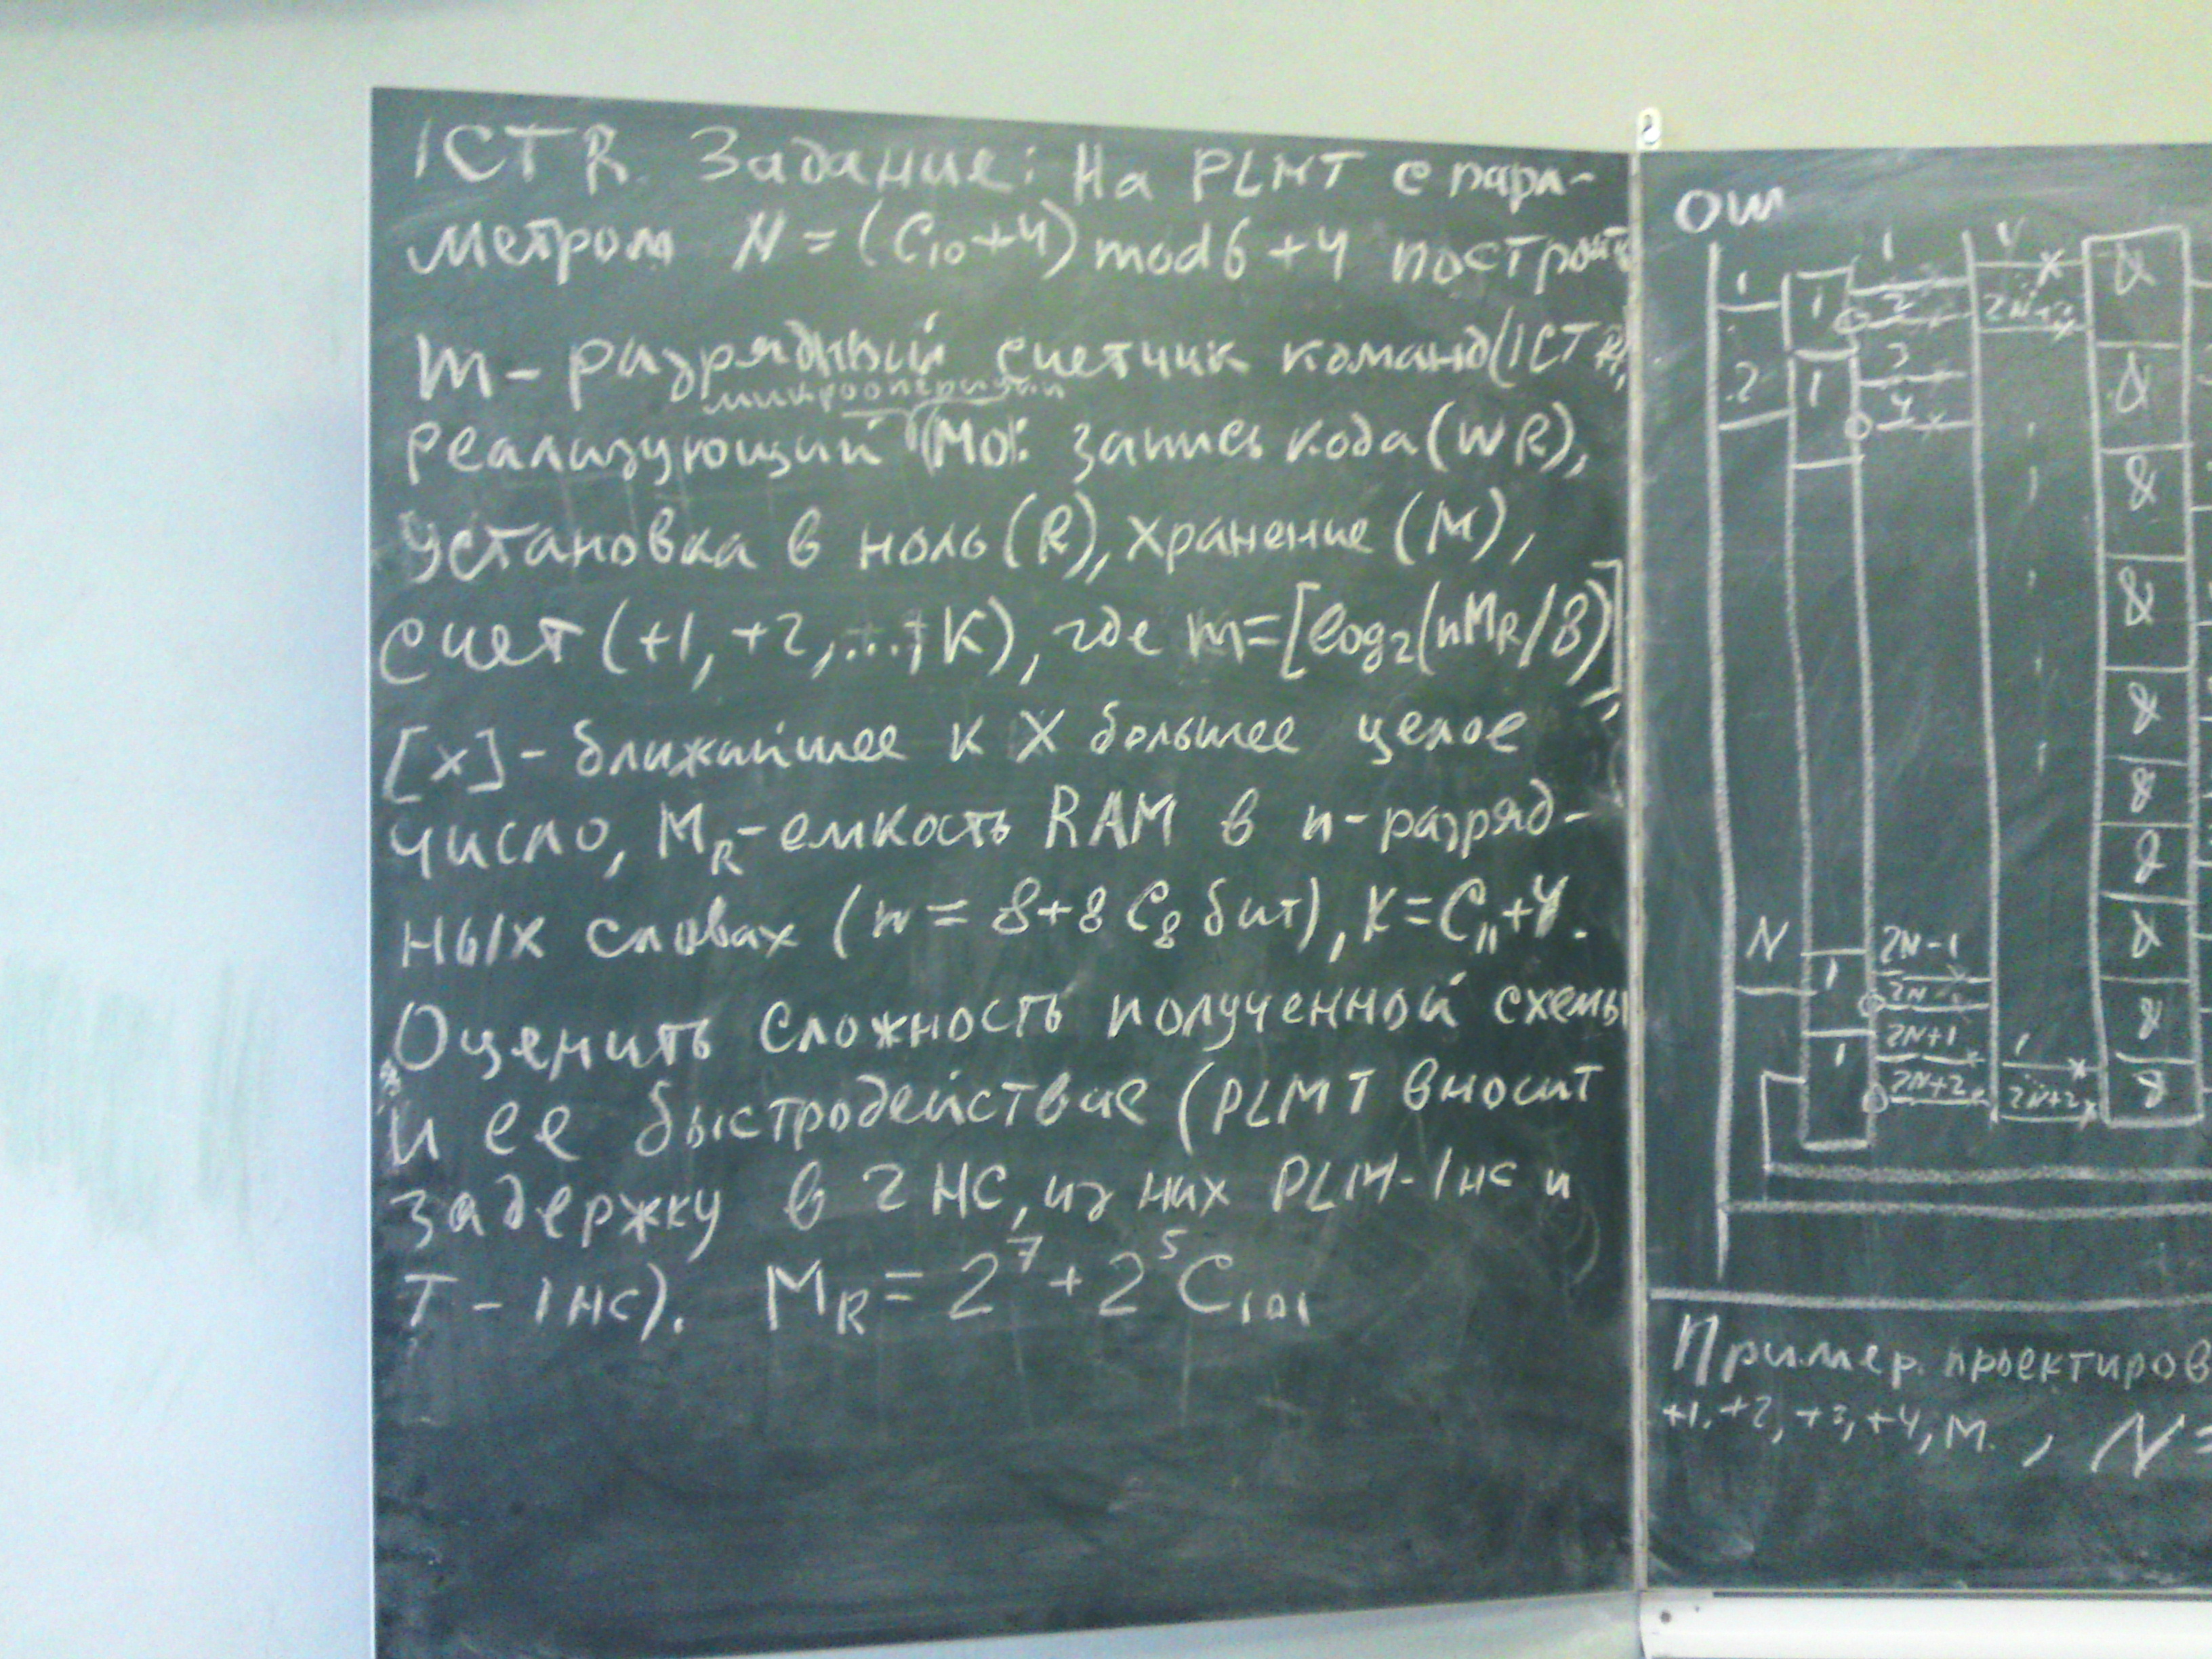 ICTR. Задание: На PLMT с пара-
метром N = (C₁₀+4) mod 6 + 4 построить
m - разрядный счетчик команд (ICTR),
микрооперации
реализующий МО: запись кода (WR),
установка в ноль (R), хранение (M),
счет (+1, +2, ..., +K), где m=[log₂(nM_R/8)],
[x] - ближайшее к X большее целое
число, M_R - емкость RAM в n-разряд-
ных словах (n = 8+8C₈ бит), K=C₁₁+4.
Оценить сложность полученной схемы
и ее быстродействие (PLMT вносит
задержку в 2 НС, из них PLM-1нс и
T - 1нс). M_R = 2⁷ + 2⁵C₁₀₁
ОШ
1 1 1 1 &
2 2N+2
2 1 3 &
4
&
&
&
&
&
&
N 1 2N-1 &
2N
1 2N+1 1 &
2N+2 2N+2
Пример проектиров
+1, +2, +3, +4, M. , N=